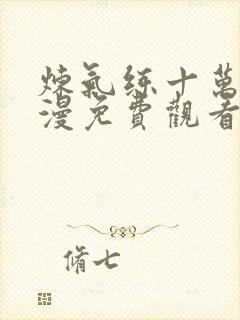 煉氣練十萬
漫免費觀看
脩七